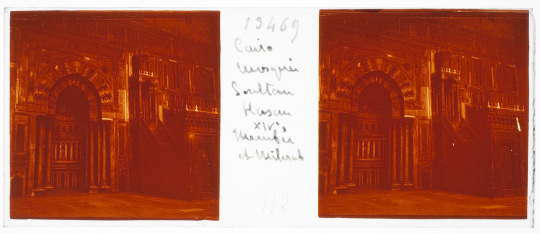 13469
Cairo
Mosquée
Soultan
Hasan
XIVe
Member
et Mihrab
112